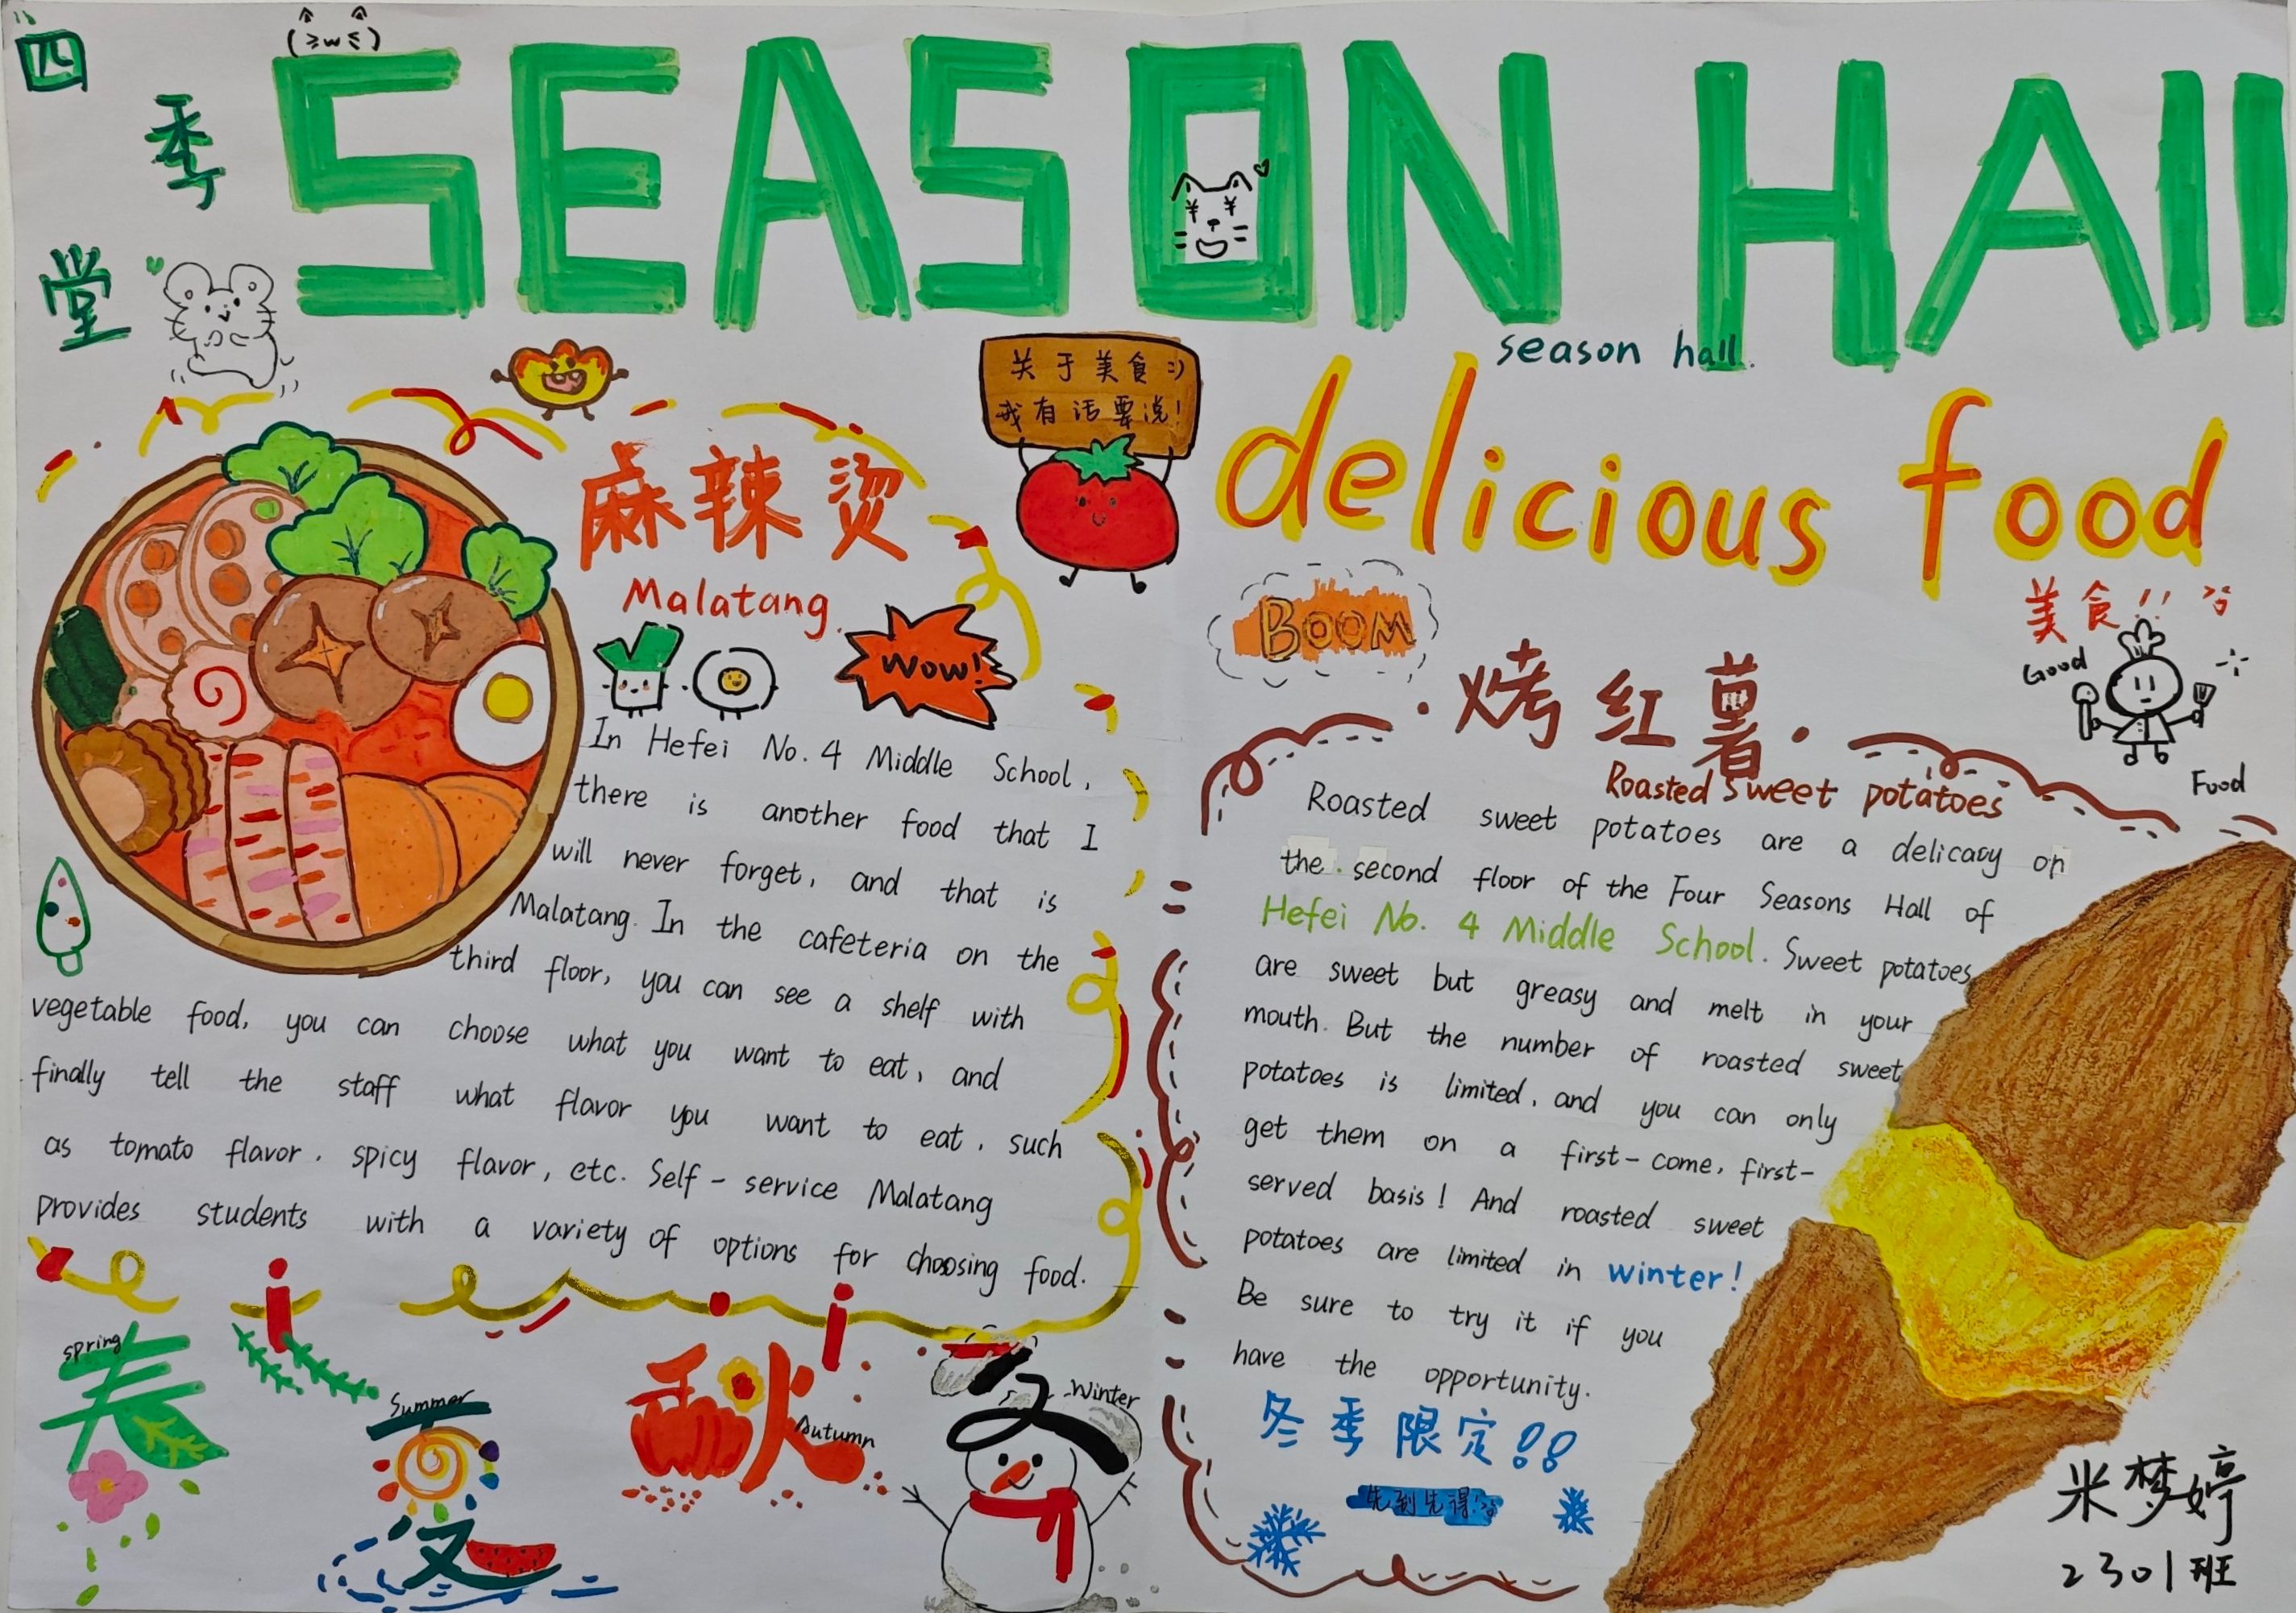 四季堂
(≥w≤)
SEASON HAll
season hall.
关于美食:)
我有话要说!
delicious food
美食!!
Good
Food
麻辣烫
Malatang
Wow!
In Hefei No. 4 Middle School,
there is another food that I
will never forget, and that is
Malatang. In the cafeteria on the
third floor, you can see a shelf with
vegetable food, you can choose what you want to eat, and
finally tell the staff what flavor you want to eat, such
as tomato flavor, spicy flavor, etc. Self-service Malatang
provides students with a variety of options for choosing food.
BOOM
·烤红薯·
Roasted sweet potatoes
Roasted sweet potatoes are a delicacy on
the second floor of the Four Seasons Hall of
Hefei No. 4 Middle School. Sweet potatoes
are sweet but greasy and melt in your
mouth. But the number of roasted sweet
potatoes is limited, and you can only
get them on a first-come, first-
served basis! And roasted sweet
potatoes are limited in winter!
Be sure to try it if you
have the opportunity.
冬季限定!!
先到先得!
spring
春
Summer
夏
秋
Autumn
Winter
冬
米梦婷
2301班